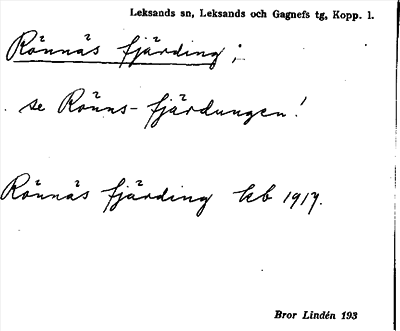 Leksands sn, Leksands och Gagnefs tg, Kopp. l.
Rönnäs fjärding;
se Rönns-fjärdungen!
Rönnäs fjärding kb 1917.
Bror Lindén 193